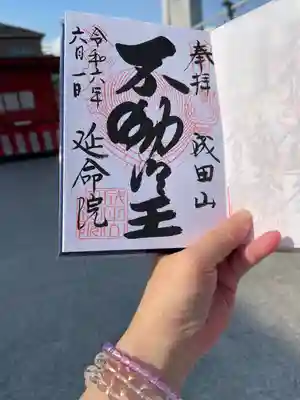 奉拝 成田山
不動明王
令和六年
六月一日
延命院